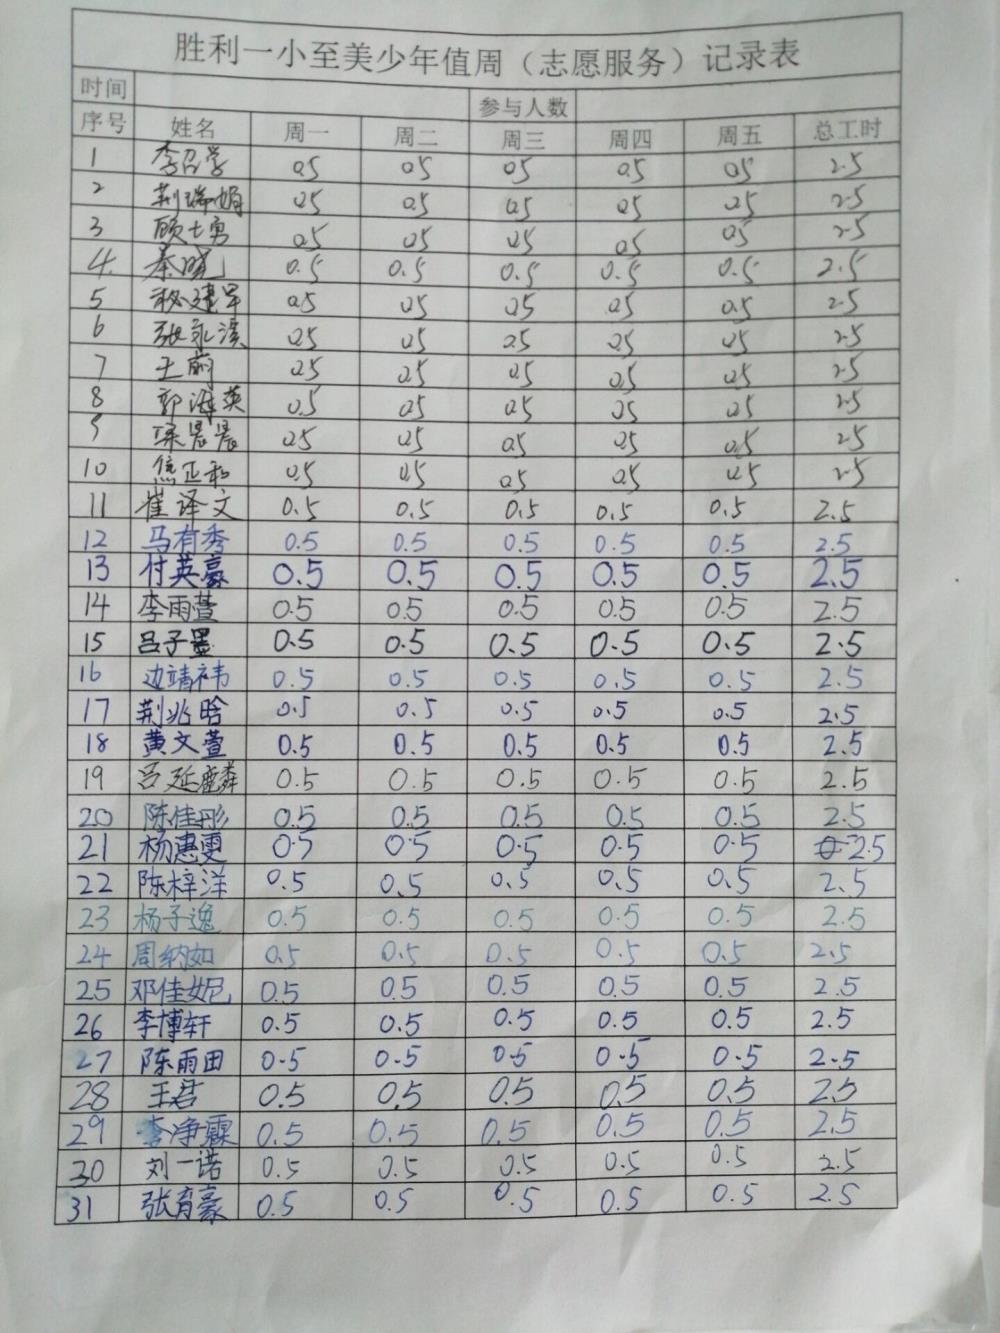 胜利一小至美少年值周（志愿服务）记录表
时间 参与人数
序号 姓名 周一 周二 周三 周四 周五 总工时
1 李召学 0.5 0.5 0.5 0.5 0.5 2.5
2 荆瑞娟 0.5 0.5 0.5 0.5 0.5 2.5
3 顾士勇 0.5 0.5 0.5 0.5 0.5 2.5
4. 秦晓 0.5 0.5 0.5 0.5 0.5 2.5
5 建军 0.5 0.5 0.5 0.5 0.5 2.5
6 张永滨 0.5 0.5 0.5 0.5 0.5 2.5
7 王 0.5 0.5 0.5 0.5 0.5 2.5
8 郭海英 0.5 0.5 0.5 0.5 0.5 2.5
9 梁晨晨 0.5 0.5 0.5 0.5 0.5 2.5
10 焦正和 0.5 0.5 0.5 0.5 0.5 2.5
11 崔译文 0.5 0.5 0.5 0.5 0.5 2.5
12 马有秀 0.5 0.5 0.5 0.5 0.5 2.5
13 付英豪 0.5 0.5 0.5 0.5 0.5 2.5
14 李雨萱 0.5 0.5 0.5 0.5 0.5 2.5
15 吕子墨 0.5 0.5 0.5 0.5 0.5 2.5
16 边靖祎 0.5 0.5 0.5 0.5 0.5 2.5
17 荆兆晗 0.5 0.5 0.5 0.5 0.5 2.5
18 黄文萱 0.5 0.5 0.5 0.5 0.5 2.5
19 吕延麟 0.5 0.5 0.5 0.5 0.5 2.5
20 陈佳彤 0.5 0.5 0.5 0.5 0.5 2.5
21 杨惠雯 0.5 0.5 0.5 0.5 0.5 2.5
22 陈梓洋 0.5 0.5 0.5 0.5 0.5 2.5
23 杨子逸 0.5 0.5 0.5 0.5 0.5 2.5
24 周纳如 0.5 0.5 0.5 0.5 0.5 2.5
25 邓佳妮 0.5 0.5 0.5 0.5 0.5 2.5
26 李博轩 0.5 0.5 0.5 0.5 0.5 2.5
27 陈雨田 0.5 0.5 0.5 0.5 0.5 2.5
28 王君 0.5 0.5 0.5 0.5 0.5 2.5
29 李净霖 0.5 0.5 0.5 0.5 0.5 2.5
30 刘一诺 0.5 0.5 0.5 0.5 0.5 2.5
31 张育豪 0.5 0.5 0.5 0.5 0.5 2.5